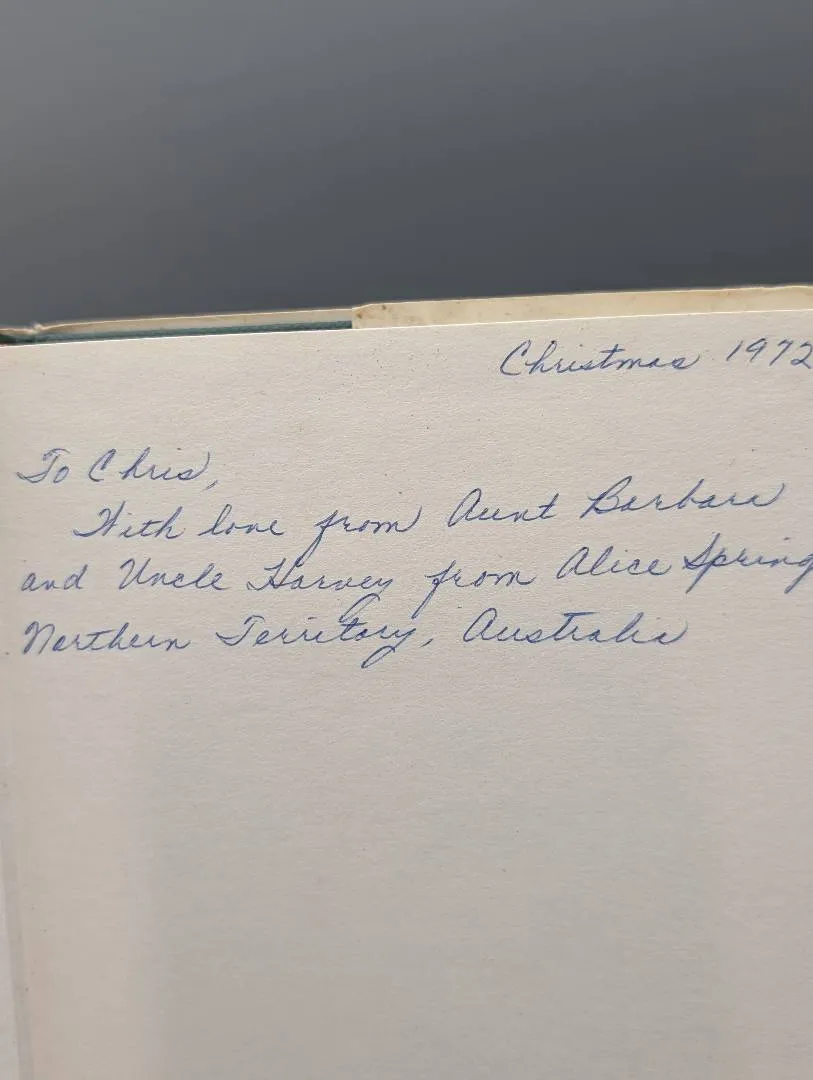 Christmas 1972
To Chris,
With love from Aunt Barbara
and Uncle Harvey from Alice Spring
Northern Territory, Australia